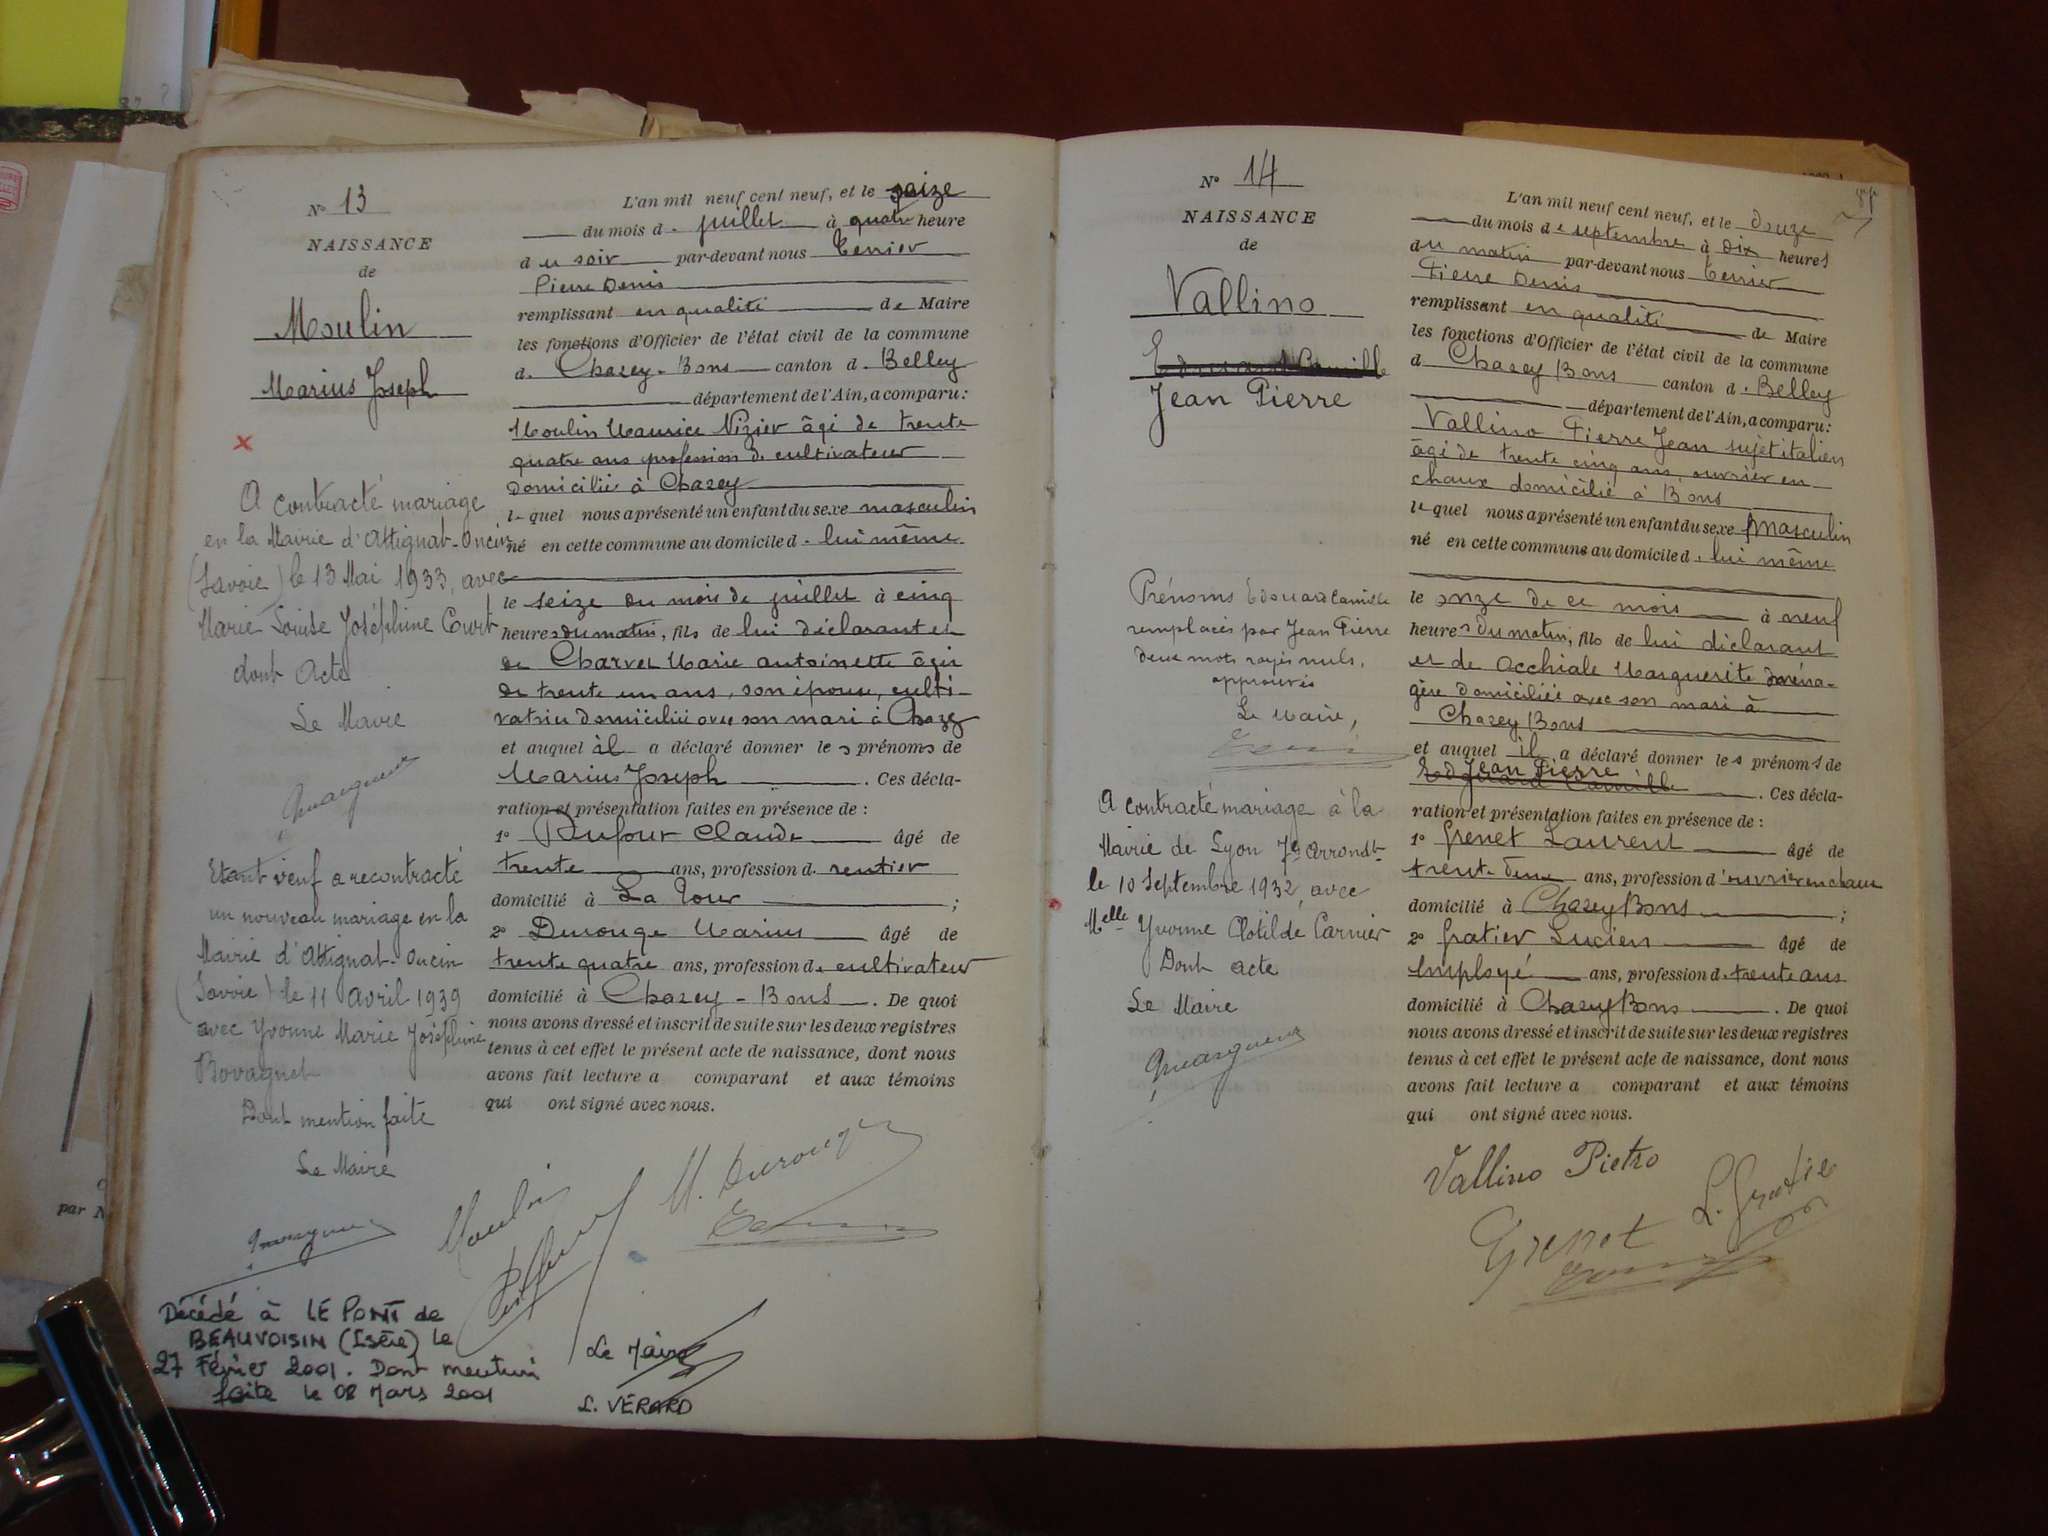 N° 13
NAISSANCE
de
Moulin
Marius Joseph
A contracté mariage
en la Mairie d'Attignat-Oncin
(Savoie) le 13 Mai 1933, avec
Marie Louise Joséphine
dont Acte
Le Maire
Etant veuf a recontracté
un nouveau mariage en la
Mairie d'Attignat-Oncin
(Savoie) le 11 avril 1939
avec Yvonne Marie Joséphine
Bovagnet
Dont mention faite
Le Maire
Décédé à LE PONT de
BEAUVOISIN (Isère) le
27 Février 2001. Dont mention
faite le 08 Mars 2001
L'an mil neuf cent neuf, et le seize
du mois d. juillet à quatre heure
du soir par-devant nous Terrier
Pierre Denis
remplissant en qualité de Maire
les fonctions d'Officier de l'état civil de la commune
d. Chazey-Bons canton d. Belley
département de l'Ain, a comparu:
Moulin Maurice Nizier âgé de trente
quatre ans profession de cultivateur
domicilié à Chazey
lequel nous a présenté un enfant du sexe masculin
né en cette commune au domicile d. lui même
le seize du mois de juillet à cinq
heures du matin, fils de lui déclarant et
de Charvet Marie antoinette âgée
de trente un ans, son épouse, culti-
vatrice domiciliée avec son mari à Chazey
et auquel il a déclaré donner les prénoms de
Marius Joseph. Ces décla-
ration et présentation faites en présence de :
1° Dufour Claude âgé de
trente ans, profession d. rentier
domicilié à La Tour ;
2° Durouge Marius âgé de
trente quatre ans, profession de cultivateur
domicilié à Chazey-Bons. De quoi
nous avons dressé et inscrit de suite sur les deux registres
tenus à cet effet le présent acte de naissance, dont nous
avons fait lecture a comparant et aux témoins
qui ont signé avec nous.
Moulin
M. Durouge
Le Maire
L. VÉRARD
N° 14
NAISSANCE
de
Vallino
Edouard Camille
Jean Pierre
Prénoms Edouard Camille
remplacés par Jean Pierre
deux mots rayés nuls.
approuvés
Le Maire,
A contracté mariage à la
Mairie de Lyon 7e arrondt
le 10 Septembre 1932, avec
Melle Yvonne Clotilde Carnier
Dont acte
Le Maire
L'an mil neuf cent neuf, et le douze
du mois de septembre à dix heures
du matin par-devant nous Terrier
Pierre Denis
remplissant en qualité de Maire
les fonctions d'Officier de l'état civil de la commune
d Chazey Bons canton d. Belley
département de l'Ain, a comparu:
Vallino Pierre Jean sujet italien
âgé de trente cinq ans ouvrier en
chaux domicilié à Bons
lequel nous a présenté un enfant du sexe masculin
né en cette commune au domicile d. lui même
le onze de ce mois à neuf
heures du matin, fils de lui déclarant
et de Acchiale Marguerite ména-
gère domiciliée avec son mari à
Chazey Bons
et auquel il a déclaré donner les prénoms de
Jean Pierre
Edouard Camille. Ces décla-
ration et présentation faites en présence de :
1° Grenet Laurent âgé de
trente deux ans, profession d'ouvrier en chaux
domicilié à Chazey Bons ;
2° Gratier Lucien âgé de
employé ans, profession d. trente ans
domicilié à Chazey Bons. De quoi
nous avons dressé et inscrit de suite sur les deux registres
tenus à cet effet le présent acte de naissance, dont nous
avons fait lecture a comparant et aux témoins
qui ont signé avec nous.
Vallino Pietro
L. Gratier
Grenet